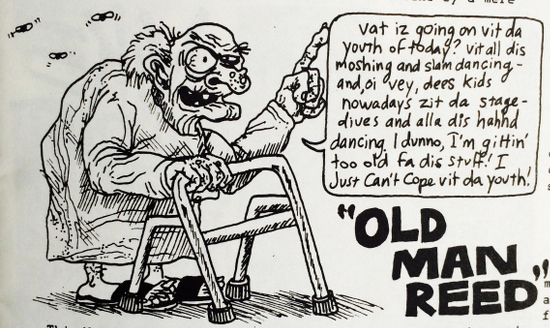 Vat iz going on vit da
youth of today? vit all dis
moshing and slam dancing-
and, oi vey, dees kids
nowadays zit da stage-
dives and alla dis hahhd
dancing. I dunno, I'm gittin'
too old fa dis stuff! I
Just Can't Cope vit da youth!
"OLD
MAN
REED"